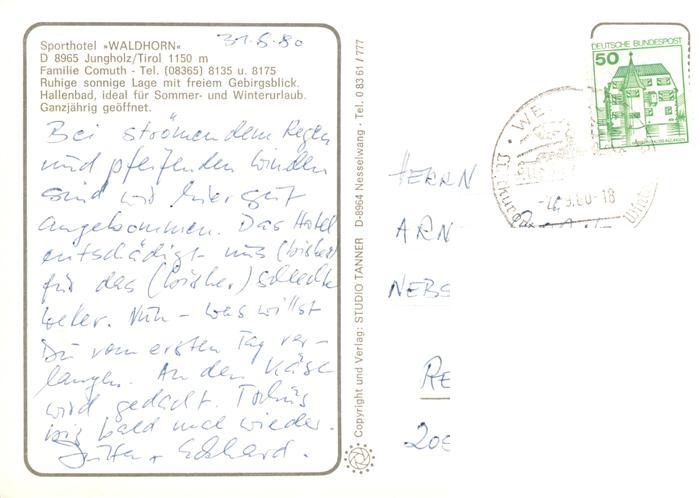 Sporthotel »WALDHORN«
D 8965 Jungholz/Tirol 1150 m
Familie Comuth - Tel. (08365) 8135 u. 8175
Ruhige sonnige Lage mit freiem Gebirgsblick.
Hallenbad, ideal für Sommer- und Winterurlaub.
Ganzjährig geöffnet.
Bei strömendem Regen
und pfeifenden Winden
sind wir hier gut
angekommen. Das Hotel
entschädigt uns (bisher)
für das (bisher) schlechte
Wetter. Nun - was willst
Du vom ersten Tag ver-
langen. An den Käse
wird gedacht. Tschüs
bis bald mal wieder.
+ Eckhard.
Copyright und Verlag: STUDIO TANNER D-8964 Nesselwang - Tel. 0 83 61 / 777
DEUTSCHE BUNDESPOST
50
HERRN
ARN
NEBS
RE
200